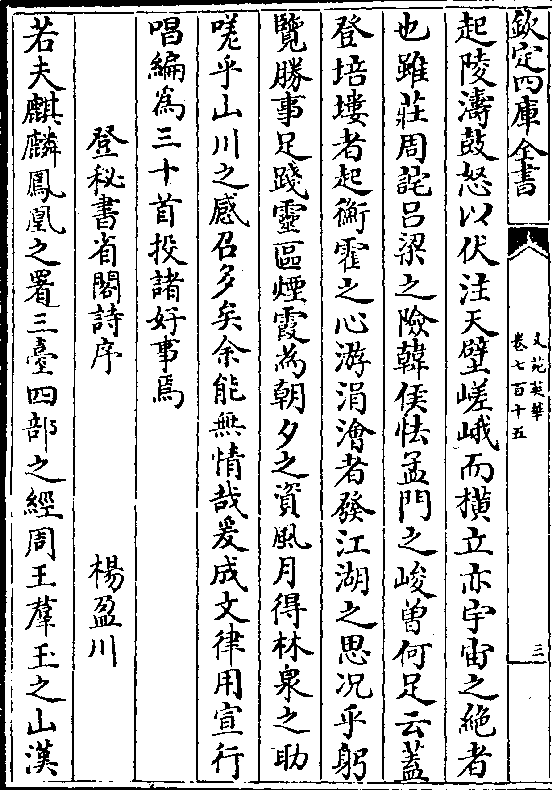 欽定四庫全書
文苑英華
卷七百十五
三
起陵濤鼓怒以伏注天壁嵯峨而横立亦宇宙之絶者
也雖莊周詫吕梁之險韓侯怯孟門之峻曾何足云蓋
登培塿者起衡霍之心游涓澮者發江湖之思况乎躬
覽勝事足踐靈區煙霞為朝夕之資風月得林泉之助
嗟乎山川之感召多矣余能無情哉爰成文律用宣行
唱編為三十首投諸好事焉
登秘書省閣詩序 楊盈川
若夫麒麟鳳凰之署三臺四部之經周王羣玉之山漢